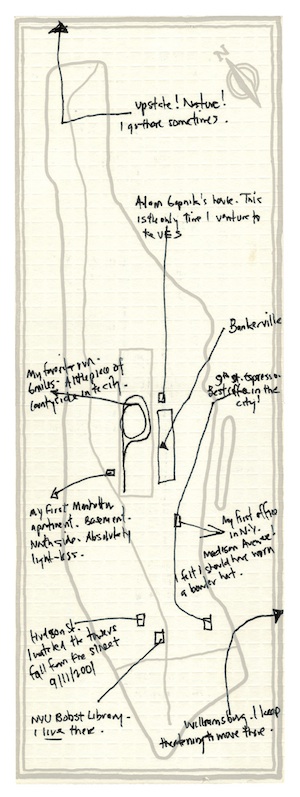 N
upstate! Nature!
I go there sometimes.
Adam Gopnik's house. This
is the only time I venture to
the UES
Bankerville
My favorite run.
6 miles. A little piece of
countryside in the city.
9th St. Espresso.
Best coffee in the
city!
My first Manhattan
apartment. Basement.
North side. Absolutely
light-less.
My first office
in N.Y.
Madison Avenue!
I felt I should have worn
a bowler hat.
Hudson St.
I watched the towers
fall from the street
9/11/2001
NYU Bobst Library.
I live there.
Williamsburg. I keep
threatening to move there.